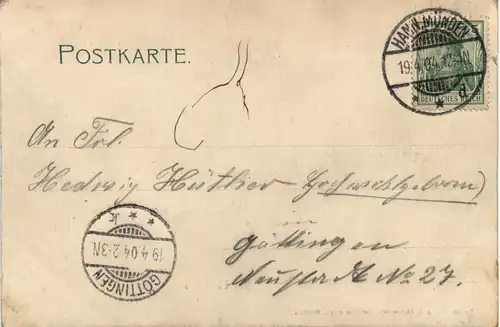 POSTKARTE.
HANN. MÜNDEN
19.4.04. 12-
DEUTSCHES REICH
An Frl.
Hedwig Hütker (Hochwohlgeboren)
in
Göttingen
Neustadt No 27.
GÖTTINGEN
19.4.04. 2-3N.
* * k